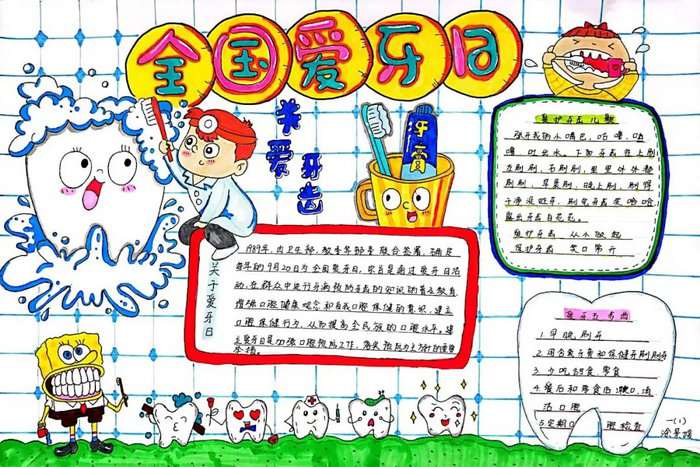 全国爱牙日
关爱牙齿
牙膏
关于爱牙日
1989年，由卫生部、教委等部委联合签署，确定
每年的9月20日为全国爱牙日。宗旨是通过爱牙日活
动，在群众中进行牙病预防
知识的
教育
增强口腔健康观念和自我口腔保健的意识，建立
口腔保健行为，从而提高全民族的口腔水平。建
立爱牙日是加强口腔预防工作，落实预防为主方针的重要
举措。
爱护牙齿儿歌
张开我的小嘴巴，咕噜，咕
噜吐出水。下切牙齿往上刷
左刷刷，右刷刷，里里外外都
刷刷，早晨刷，晚上刷，刷得
干净没蛀牙。刷完牙齿笑哈哈
露出牙齿白花花。
爱护牙齿 从小做起
保护牙齿 笑口常开
爱牙五步曲
1.早晚刷牙
2.用含氟牙膏和保健牙刷刷牙
3.少吃甜食零食
4.餐后和零食后漱口，清
洁口腔
5.定期口腔检查
一(1)